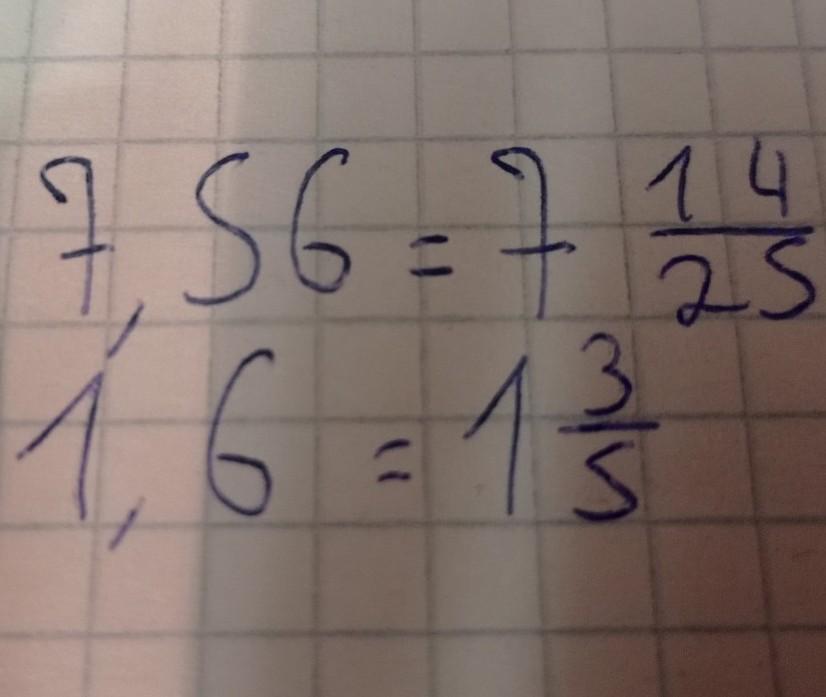 7,56 = 7 14/25
1,6 = 1 3/5